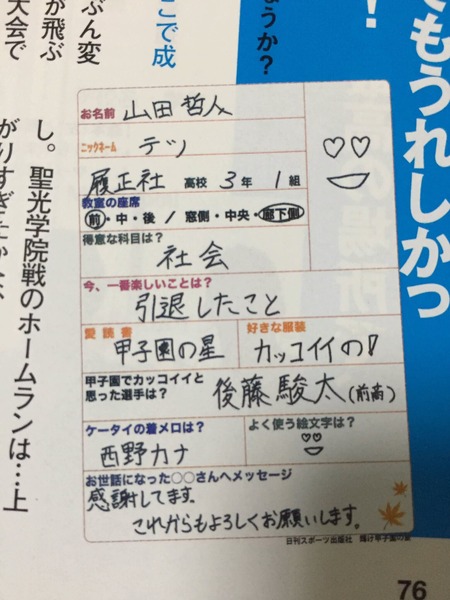 ぶん変
が飛ぶ
大会で
こで成
ようか?
!
でもうれしかっ
し。聖光学院戦のホームランは…上
お名前 山田哲人
ニックネーム テツ
履正社 高校 3年 1組
教室の座席
前・中・後 / 窓側・中央・廊下側
得意な科目は?
社会
今、一番楽しいことは?
引退したこと
愛読書 好きな服装
甲子園の星 カッコイイの!
甲子園でカッコイイと
思った選手は?
後藤駿太(前高)
ケータイの着メロは? よく使う絵文字は?
西野カナ
お世話になった○○さんへメッセージ
感謝してます。
これからもよろしくお願いします。
日刊スポーツ出版社 輝け甲子園の星
76